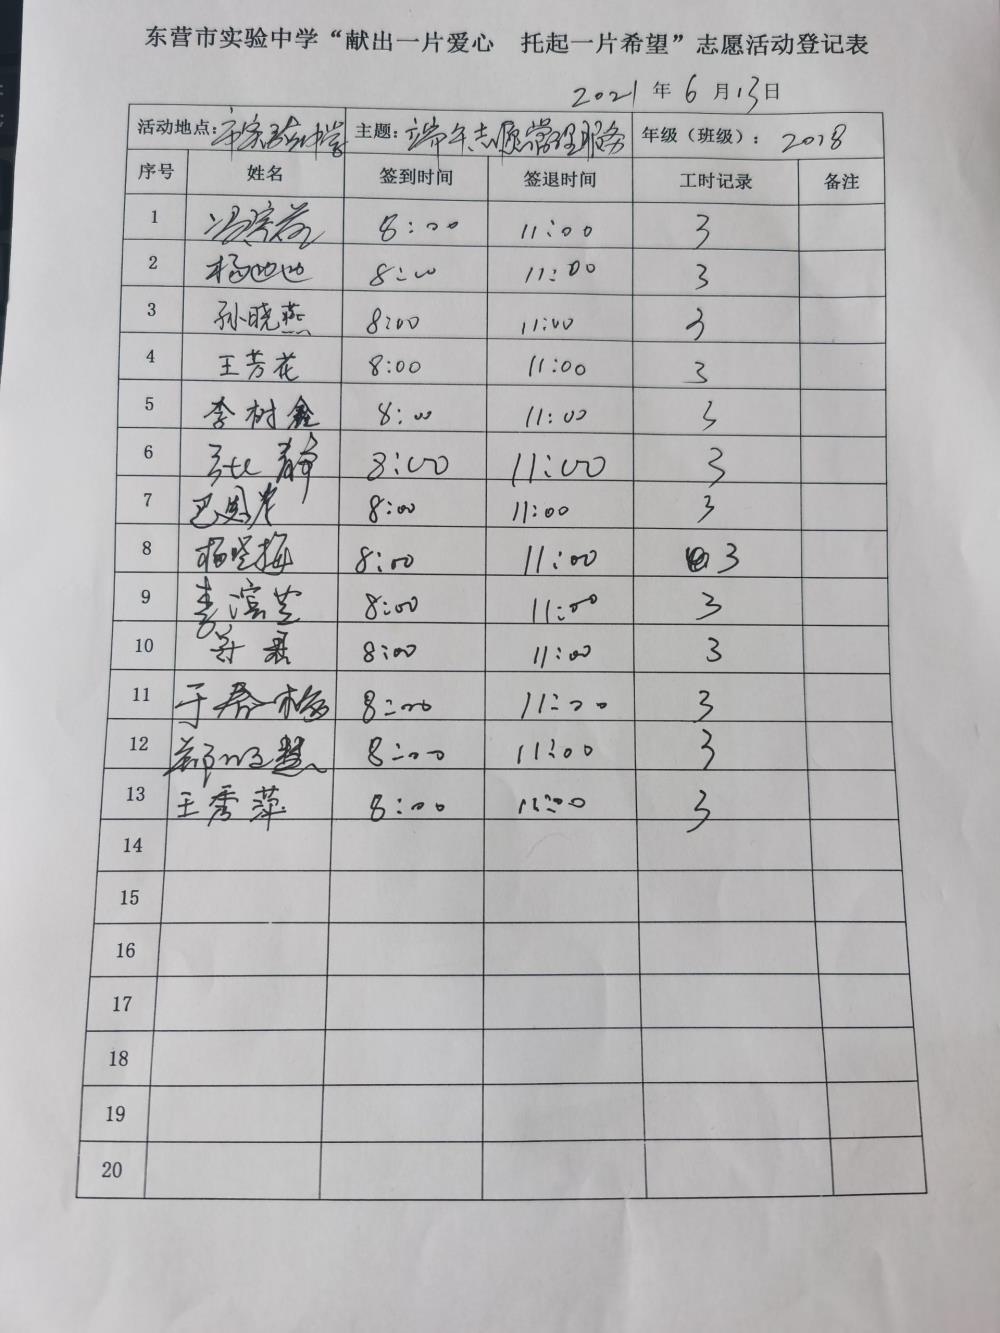 东营市实验中学“献出一片爱心 托起一片希望”志愿活动登记表
2021 年 6 月 13 日
活动地点: 市实验中学 主题: 端午志愿管理服务 年级（班级）: 2018
序号 姓名 签到时间 签退时间 工时记录 备注
1 8:00 11:00 3
2 杨 8:00 11:00 3
3 孙晓燕 8:00 11:00 3
4 王芳花 8:00 11:00 3
5 李树鑫 8:00 11:00 3
6 张静 8:00 11:00 3
7 巴 8:00 11:00 3
8 杨晓梅 8:00 11:00 3
9 李滨芝 8:00 11:00 3
10 8:00 11:00 3
11 于春梅 8:00 11:00 3
12 郭明慧 8:00 11:00 3
13 王秀萍 8:00 11:00 3
14
15
16
17
18
19
20